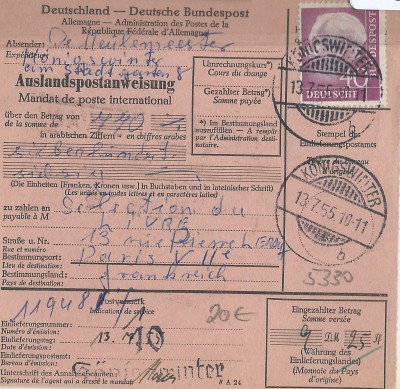 Deutschland — Deutsche Bundespost
Allemagne — Administration des Postes de la
République Fédérale d'Allemagne
Absender: De
Expéditeur
am Stadtgarten 8
Auslandspostanweisung
Mandat de poste international
Umrechnungskurs*)
Cours du change
Gezahlter Betrag*)
Somme payée
*) Im Bestimmungsland
auszufüllen — A remplir
par l'Administration desti-
nataire.
über den Betrag von
de la somme de
in arabischen Ziffern — en chiffres arabes
siebenhundert
(Die Einheiten (Franken, Kronen usw.) in Buchstaben und in lateinischer Schrift)
(Les unités en toutes lettres et en caractères latins)
zu zahlen an
payable à M
Sélection du
Straße u. Nr.
Rue et numéro
13 rue Pierre Leroux
Bestimmungsort:
Lieu de destination:
Paris VIIe
Bestimmungsland:
Pays de destination:
Frankreich
KÖNIGSWINTER
13.7.55
40
DEUTSCHE BUNDESPOST
Stempel des
Einlieferungspostamts
Timbre du bureau
d'origine
KÖNIGSWINTER
13.7.55.10-11
b
5330
Postvermerk
Indications de service
20€
Einlieferungsnummer:
Numéro d'émission:
Einlieferungstag:
Date d'émission:
13. 7.
Einlieferungspostamt:
Bureau d'émission:
Königswinter
Unterschrift des Annahmebeamten:
Signature de l'agent qui a dressé le mandat
8 A 24
Eingezahlter Betrag
Somme versée
9 DM 25
(Währung des
Einlieferungslandes)
(Monnaie du Pays
d'origine)